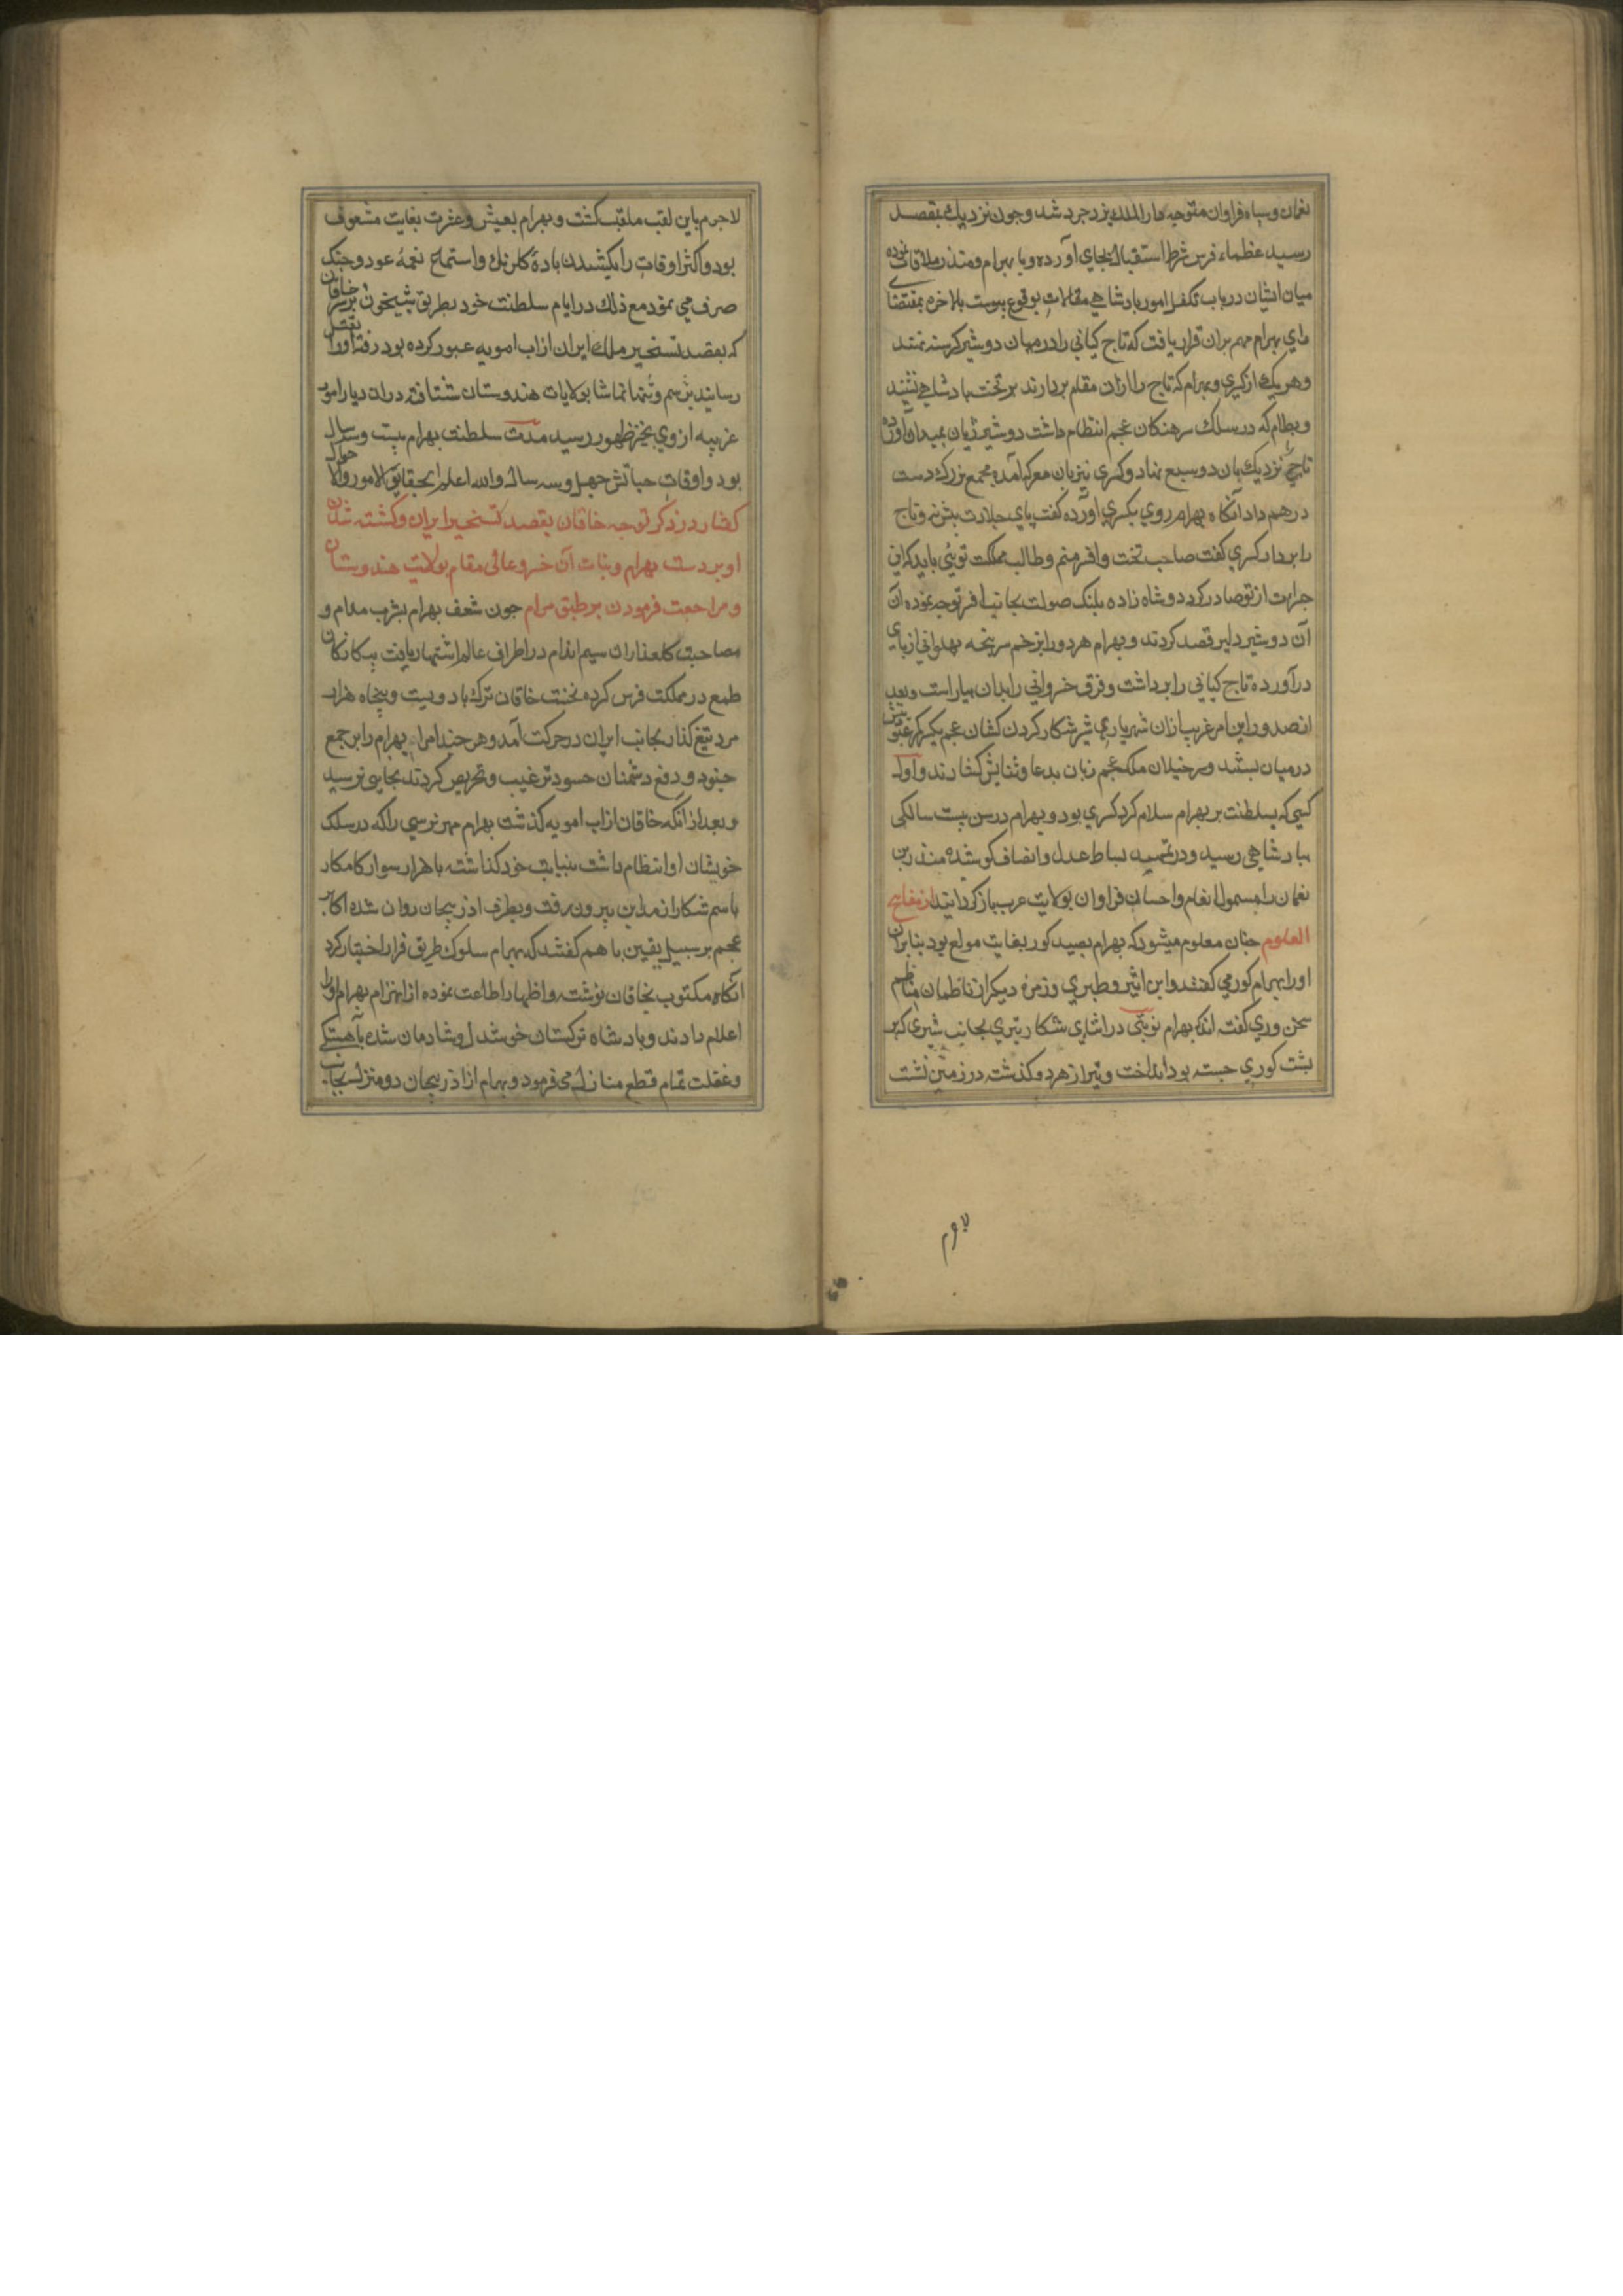 نعمان و سپاه فراوان متوجه دار الملك یزدجرد شد و چون نزدیك بمقصد
رسید عظماء فرس شرط استقبال بجای آورده و با بهرام و منذر ملاقات نموده
میان ایشان در باب تکفل امور پادشاهی مقالات بوقوع پیوست بالاخره بمقتضای
رای بهرام مهم بران قرار یافت که تاج کیانی را در میان دو شیر گرسنه نهند
و هر یك از کسری و بهرام که تاج را ازان مقام بردارند بر تخت پادشاهی نشیند
و بسطام که در سلك سرهنکان عجم انتظام داشت دو شیر ژیان بمیدان آورده
تاجی نزدیك بان دو سبع نهاد و کسری نیز بان معرکه آمده مجمع بزرك دست
درهم داد آنکاه بهرام روی بکسری آورده کفت پای جلادت پیش نه و تاج
را بردار کسری کفت صاحب تخت و افسر منم و طالب مملکت توئی باید که این
جرات از تو صادر کردد و شاه زاده پلنك صولت بجانب افسر توجه نموده آن
آن دو شیر دلیر قصد کردند و بهرام هر دو را بزخم سرپنجه پهلوانی از پای
درآورده تاج کیانی را برداشت و فرق خسروانی را بدان بیاراست و بعد
از صدور این امر غریب ازان شهریاری شیر شکار کردن کشان عجم یکسر کمر عبودیت
در میان بستند و سرخیلان ملك عجم زبان بدعا و ثنایش کشادند و اول
کسی که بسلطنت بر بهرام سلام کرد کسری بود و بهرام در سن بیست سالکی
بپادشاهی رسید و در تمهید بساط عدل و انصاف کوشیده منذر بن
نعمان را مشمول انعام و احسان فراوان بولایت عرب بازکردانید از مفاتیح
العلوم چنان معلوم میشود که بهرام بصید کور بغایت مولع بود بنابران
او را بهرام کور می کفتند و ابن اثیر و طبری و زمره دیکر از ناظمان مناظم
سخن وری کفته اند که بهرام نوبتی در اثنای شکار تیری بجانب شیری که بر
پشت کوری جسته بود انداخت و تیر از هر دو کذشته در زمین نشست
لاجرم
لاجرم باین لقب ملقب کشت و بهرام بعیش و عشرت بغایت مشعوف
بود و اکثر اوقات را بکشیدن بادهٔ کلرنك و استماع نغمهٔ عود و چنك
صرف می نمود مع ذلك در ایام سلطنت خود بطریق شبیخون بر سر خاقان
که بقصد تسخیر ملك ایران از اب امویه عبور کرده بود رفته او را بقتل
رسانید برسم و تنها تماشا بولایات هندوستان شتافته دران دیار امور
غریبه از وی بحیز ظهور رسید مدت سلطنت بهرام بیست و سه سال
بود و اوقات حیاتش چهل و سه سال والله اعلم بحقایق الامور والاحوال
کفتار در ذکر توجه خاقان بقصد تسخیر ایران و کشته شدن
او بر دست بهرام و بنات آن خسرو عالی مقام بولایت هندوستان
و مراجعت فرمودن بر طبق مرام چون شعف بهرام بشرب مدام و
مصاحبت کلعذاران سیم اندام در اطراف عالم اشتهار یافت بیکانکان
طمع در مملکت فرس کرده نخست خاقان ترك با دویست و پنجاه هزار
مرد تیغ کذار بجانب ایران در حرکت آمد و هر چند امرا بهرام را بر جمع
جنود و دفع دشمنان حسود ترغیب و تحریص کردند بجایی نرسید
و بعد از انکه خاقان از اب امویه کذشت بهرام مهر نرسی را که در سلك
خویشان او انتظام داشت بنیابت خود کذاشته با هزار سوار کامکار
باسم شکار از مداین بیرون رفت و بطرف اذربیجان روان شده اکابر
عجم بر سبیل یقین با هم کفتند که بهرام سلوك طریق فرار اختیار کرد
انکاه مکتوب بخاقان نوشته و اظهار اطاعت نموده از انهزام بهرام او را
اعلام دادند و پادشاه ترکستان خوشدل و شادمان شده بآهستکی
و غفلت تمام قطع منازل می فرمود و بهرام از اذربیجان دو منزل بجانب